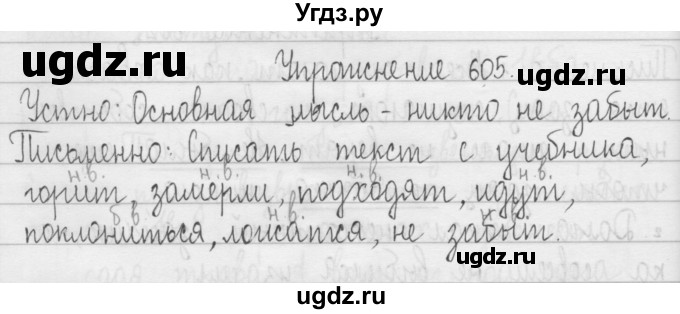 Угдз.ру
ugdz.ru ugdz.ru
Упражнение 605.
Устно: Основная мысль - никто не забыт.
Письменно: Списать текст с учебника,
н.в. н.в. н.в. н.в.
горит, замерли, подходят, идут,
б.в. н.в. н.в.
поклониться, ложатся, не забыт.
ugdz.ru ugdz.ru
ugdz.ru